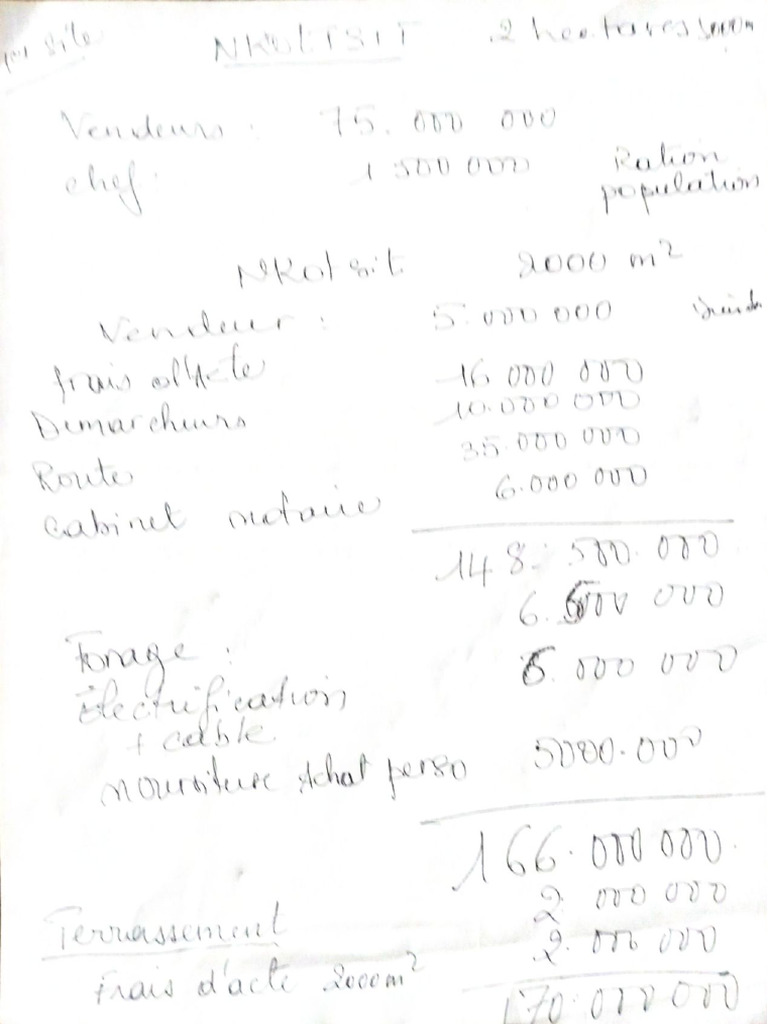 1er site NKOLTSIT 2 hectares 5000m
Vendeurs : 75.000 000
chef : 1 500 000 Ration
population
NKoltsit 2000 m²
Vendeur : 5.000 000
frais d'Acte 16 000 000
Demarcheurs 10.000 000
Route 35.000 000
Cabinet notaire 6.000 000
148. 500. 000
Forage : 6.500 000
Électrification 6.000 000
+ cable
nourriture Achat perso 5000.000
166.000 000
Terrassement 2 000 000
Frais d'acte 2000m² 2.000 000
170.000 000